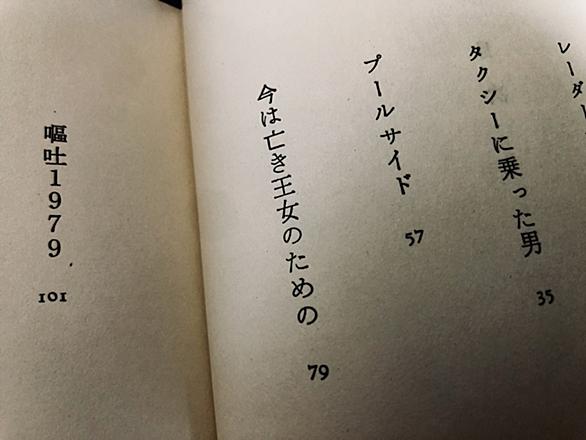 レーダー
タクシーに乗った男
35
プールサイド
57
今は亡き王女のための
79
嘔吐1979
101